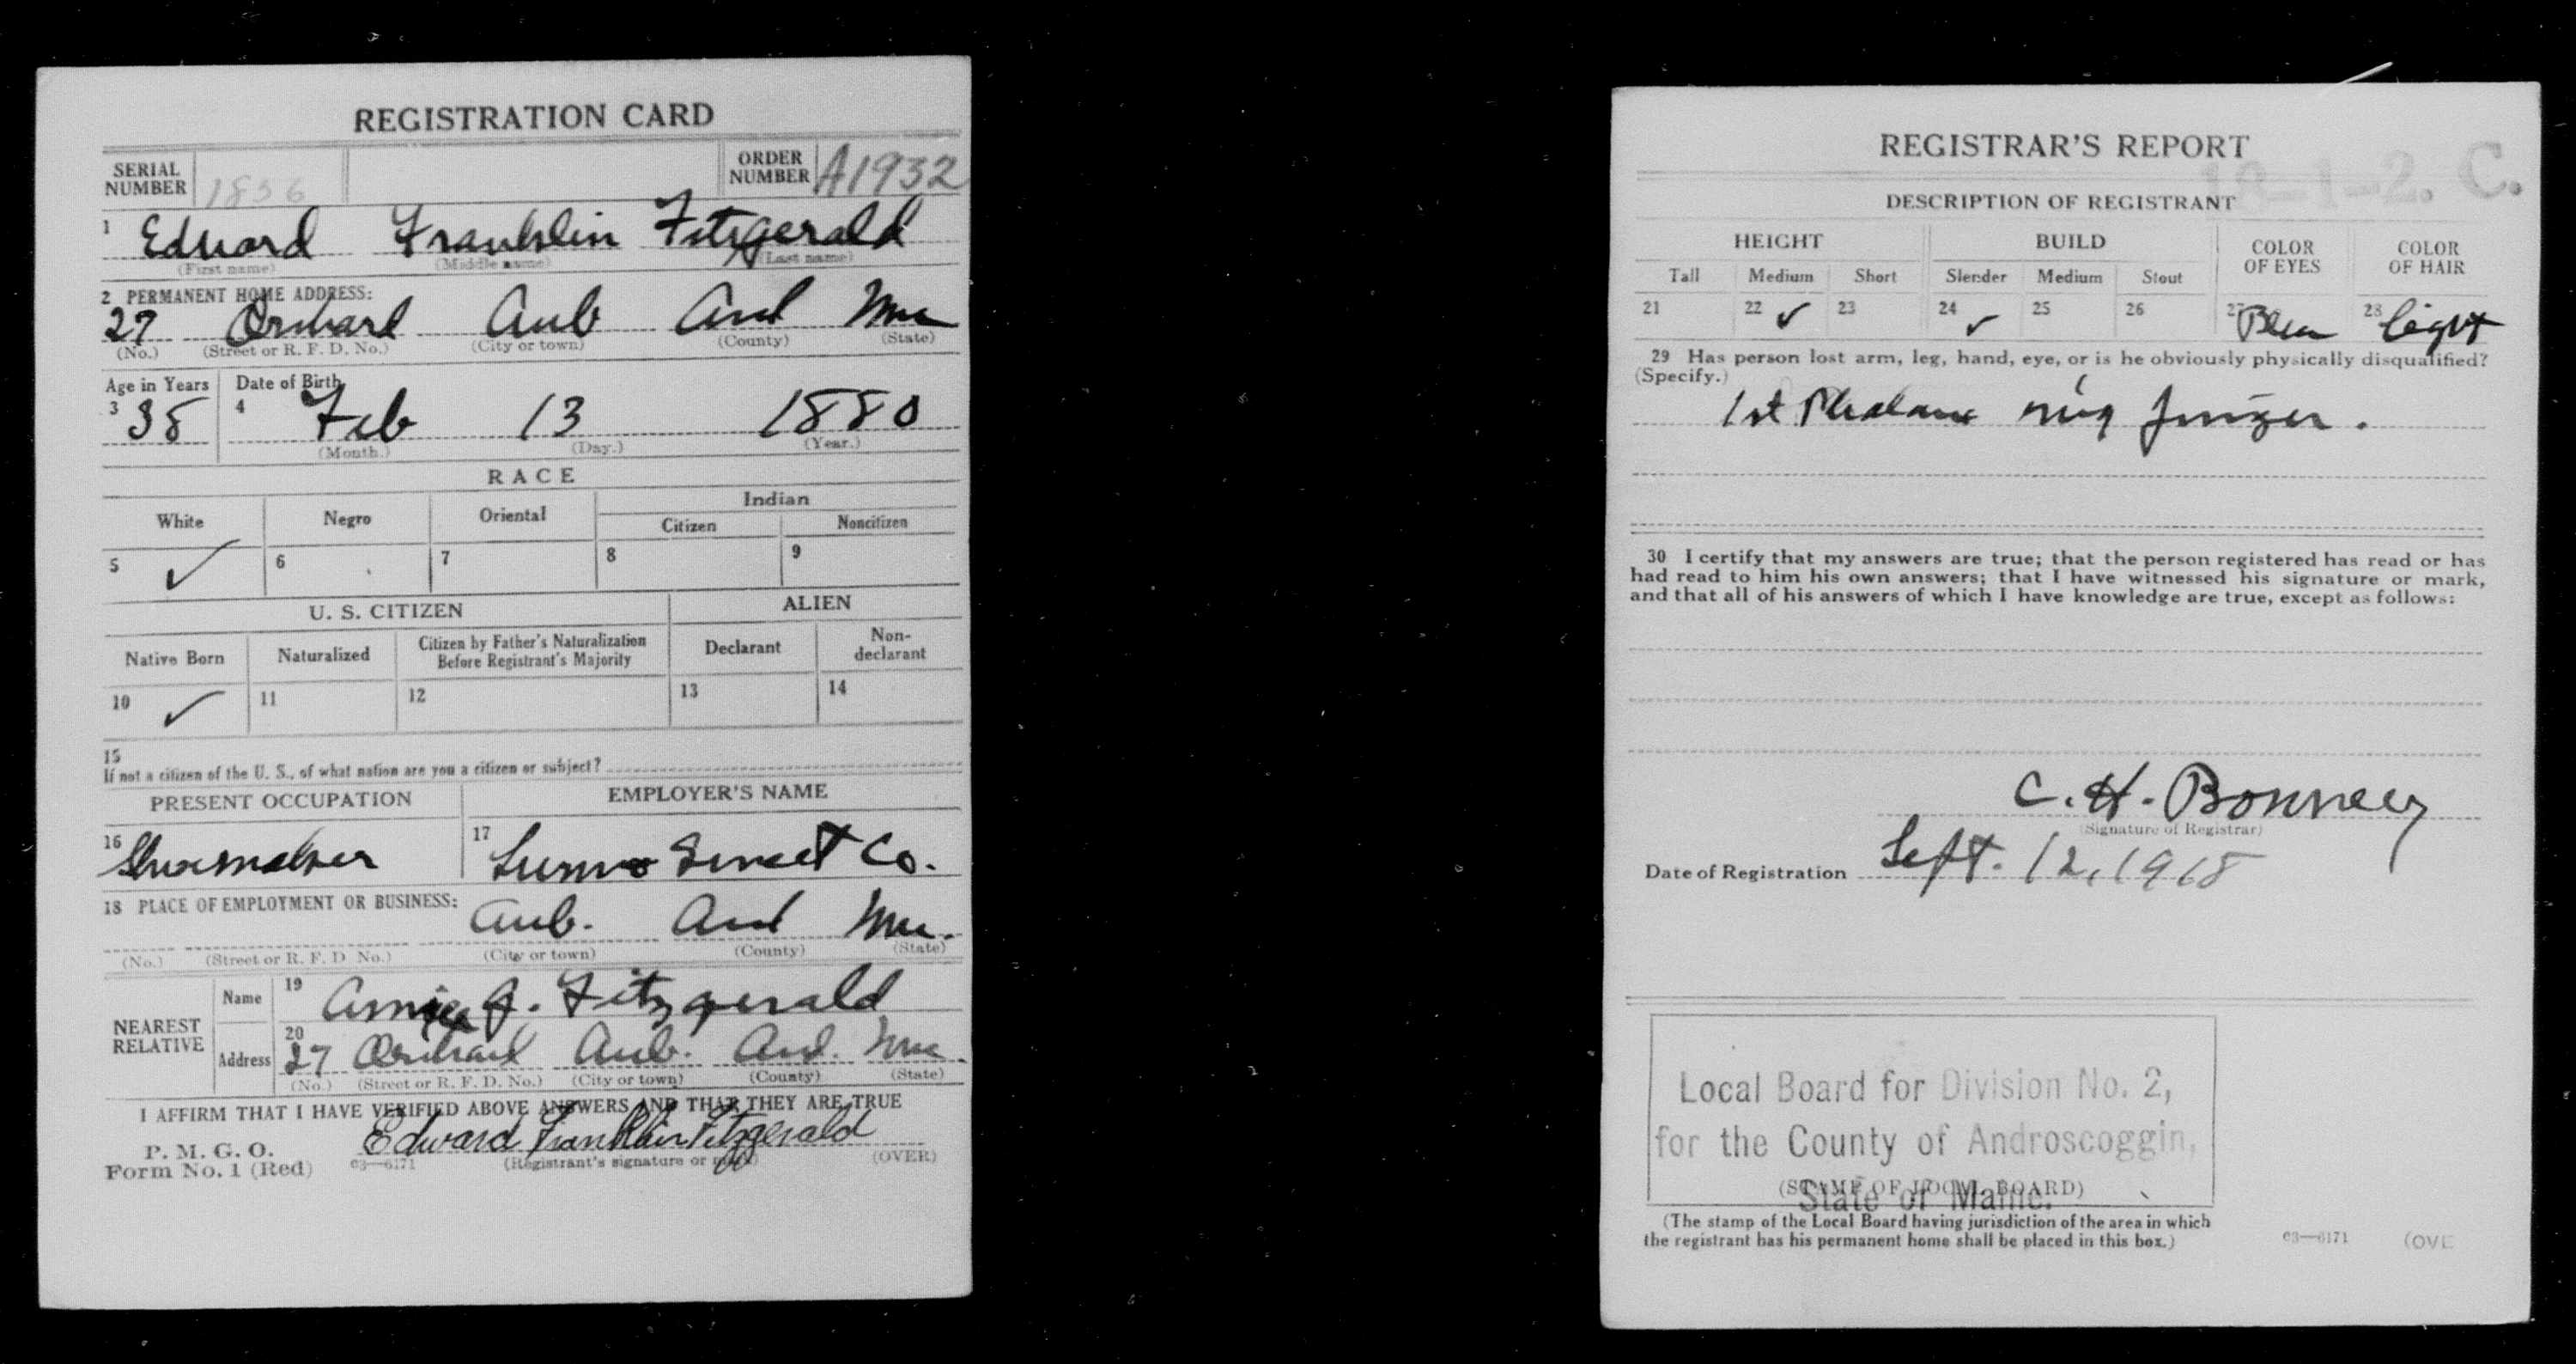 REGISTRATION CARD
SERIAL NUMBER 1836 ORDER NUMBER A1932
1 Edward Franklin Fitzgerald
(First name) (Middle name) (Last name)
2 PERMANENT HOME ADDRESS:
27 Orchard Aub And Me
(No.) (Street or R. F. D. No.) (City or town) (County) (State)
Age in Years Date of Birth
3 38 4 Feb 13 1880
(Month.) (Day.) (Year.)
RACE
White Negro Oriental Indian
Citizen Noncitizen
5 ✓ 6 7 8 9
U. S. CITIZEN ALIEN
Native Born Naturalized Citizen by Father's Naturalization Before Registrant's Majority Declarant Non-declarant
10 ✓ 11 12 13 14
15
If not a citizen of the U. S., of what nation are you a citizen or subject?
PRESENT OCCUPATION EMPLOYER'S NAME
16 Shoemaker 17 Co.
18 PLACE OF EMPLOYMENT OR BUSINESS:
Aub. And Me.
(No.) (Street or R. F. D No.) (City or town) (County) (State)
NEAREST RELATIVE
Name 19 J. Fitzgerald
Address 20 27 Orchard Aub. And. Me
(No.) (Street or R. F. D. No.) (City or town) (County) (State)
I AFFIRM THAT I HAVE VERIFIED ABOVE ANSWERS AND THAT THEY ARE TRUE
P. M. G. O.
Form No. 1 (Red) 03—6171 Edward Franklin Fitzgerald
(Registrant's signature or mark) (OVER)
REGISTRAR'S REPORT
-1-2. C.
DESCRIPTION OF REGISTRANT
HEIGHT BUILD COLOR OF EYES COLOR OF HAIR
Tall Medium Short Slender Medium Stout
21 22 ✓ 23 24 ✓ 25 26 27 Blue 28 light
29 Has person lost arm, leg, hand, eye, or is he obviously physically disqualified?
(Specify.)
1st Phalanx ring finger.
30 I certify that my answers are true; that the person registered has read or has
had read to him his own answers; that I have witnessed his signature or mark,
and that all of his answers of which I have knowledge are true, except as follows:
C. H. Bonney
(Signature of Registrar)
Date of Registration Sept. 12, 1918
Local Board for Division No. 2,
for the County of Androscoggin,
(STAMP OF LOCAL BOARD)
State of Maine.
(The stamp of the Local Board having jurisdiction of the area in which
the registrant has his permanent home shall be placed in this box.)
03—6171 (OVE